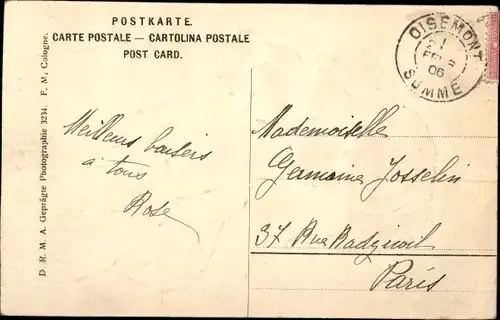 POSTKARTE.
CARTE POSTALE — CARTOLINA POSTALE
POST CARD.
OISEMONT
06
SOMME
D. R. M. A. Geprägte Photographie 3234. F. M., Cologne.
Meilleurs baisers
à tous
Rose
Mademoiselle
Germaine Josselin
37 Rue Radziwil
Paris